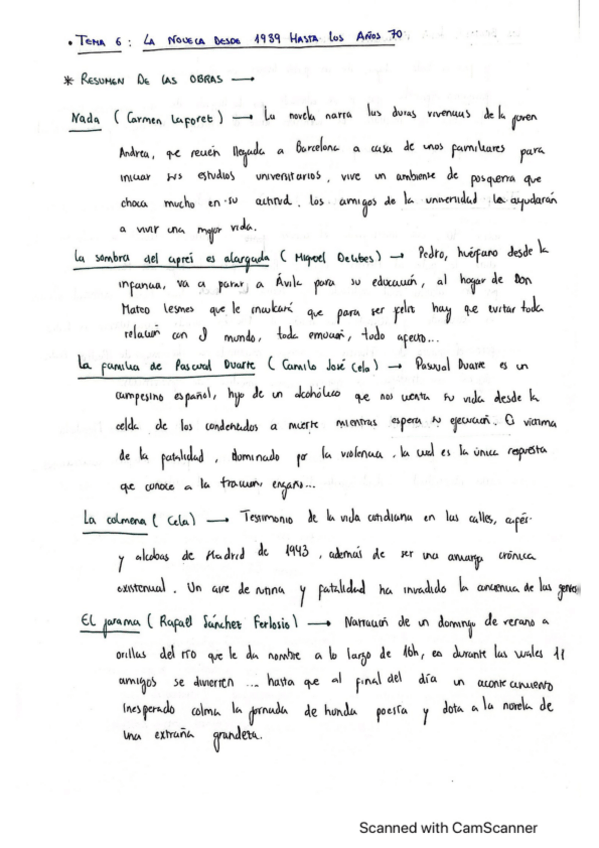 • TEMA 6: LA NOVELA DESDE 1939 HASTA LOS AÑOS 70
* RESUMEN DE LAS OBRAS →
Nada (Carmen Laforet) → La novela narra las duras vivencias de la joven
Andrea, que recién llegada a Barcelona a casa de unos familiares para
iniciar sus estudios universitarios, vive un ambiente de posguerra que
choca mucho en su actitud. Los amigos de la universidad la ayudarán
a vivir una mejor vida.
La sombra del ciprés es alargada (Miguel Delibes) → Pedro, huérfano desde la
infancia, va a parar a Ávila para su educación, al hogar de Don
Mateo Lesmes que le inculcará que para ser feliz hay que evitar toda
relación con el mundo, toda emoción, todo afecto...
La familia de Pascual Duarte (Camilo José Cela) → Pascual Duarte es un
campesino español, hijo de un alcohólico que nos cuenta su vida desde la
celda de los condenados a muerte mientras espera su ejecución. Es víctima
de la fatalidad, dominado por la violencia, la cual es la única respuesta
que conoce a la traición, engaño...
La colmena (Cela) → Testimonio de la vida cotidiana en las calles, cafés
y alcobas de Madrid de 1943, además de ser una amarga crónica
existencial. Un aire de rutina y fatalidad ha invadido la conciencia de las gentes
El Jarama (Rafael Sánchez Ferlosio) → Narración de un domingo de verano a
orillas del río que le da nombre a lo largo de 16h, en durante las cuales 11
amigos se divierten ... hasta que al final del día un acontecimiento
inesperado colma la jornada de honda poesía y dota a la novela de
una extraña grandeza.
Scanned with CamScanner